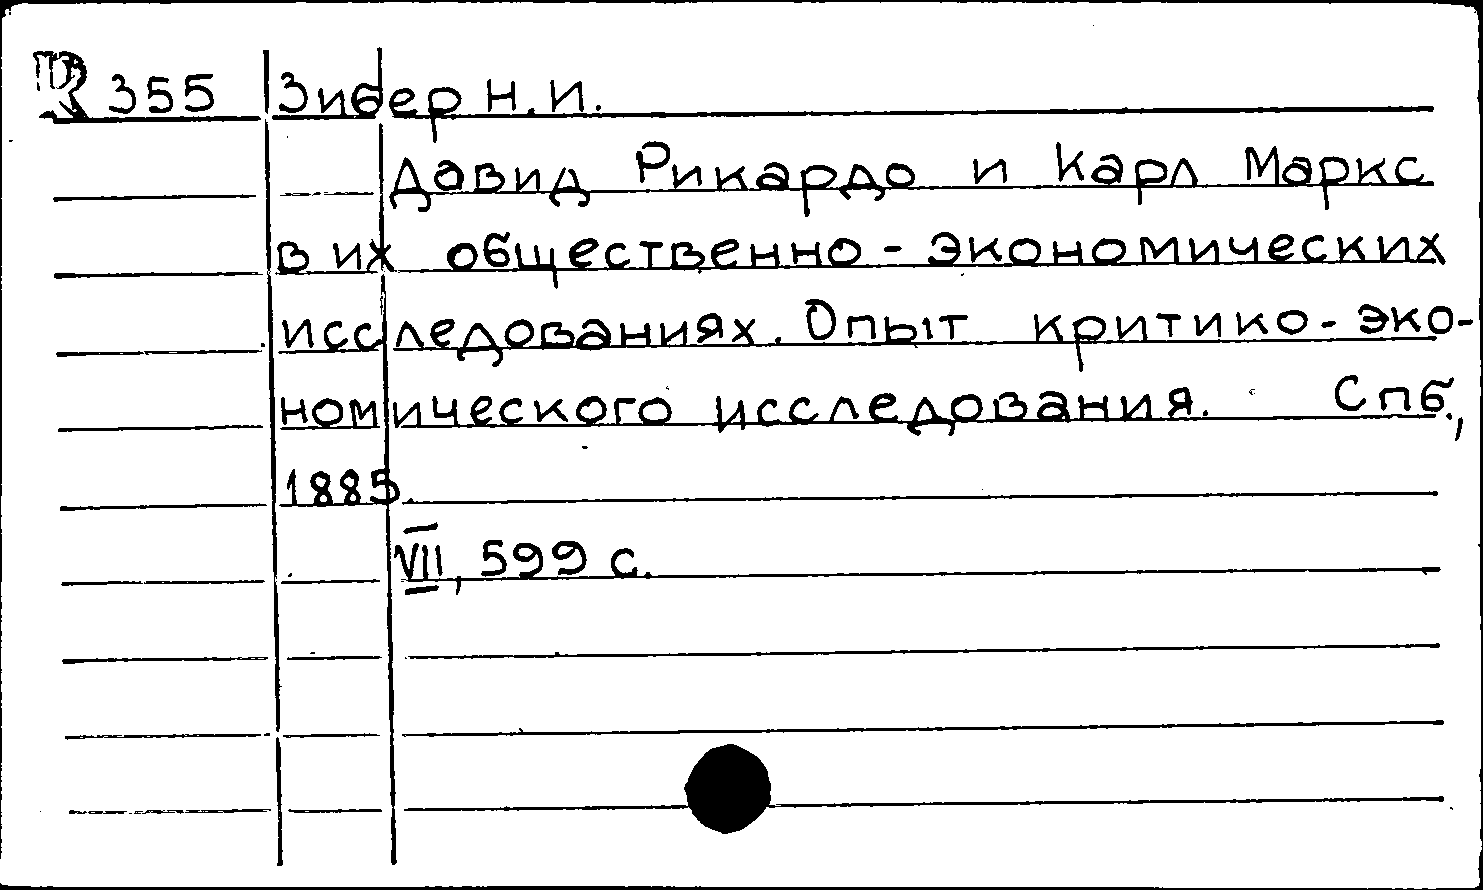 R 355 Зибер Н.И.
Давид Рикардо и Карл Маркс
в их общественно-экономических
исследованиях. Опыт критико-эко-
номического исследования. Спб.,
1885.
VII, 599 с.